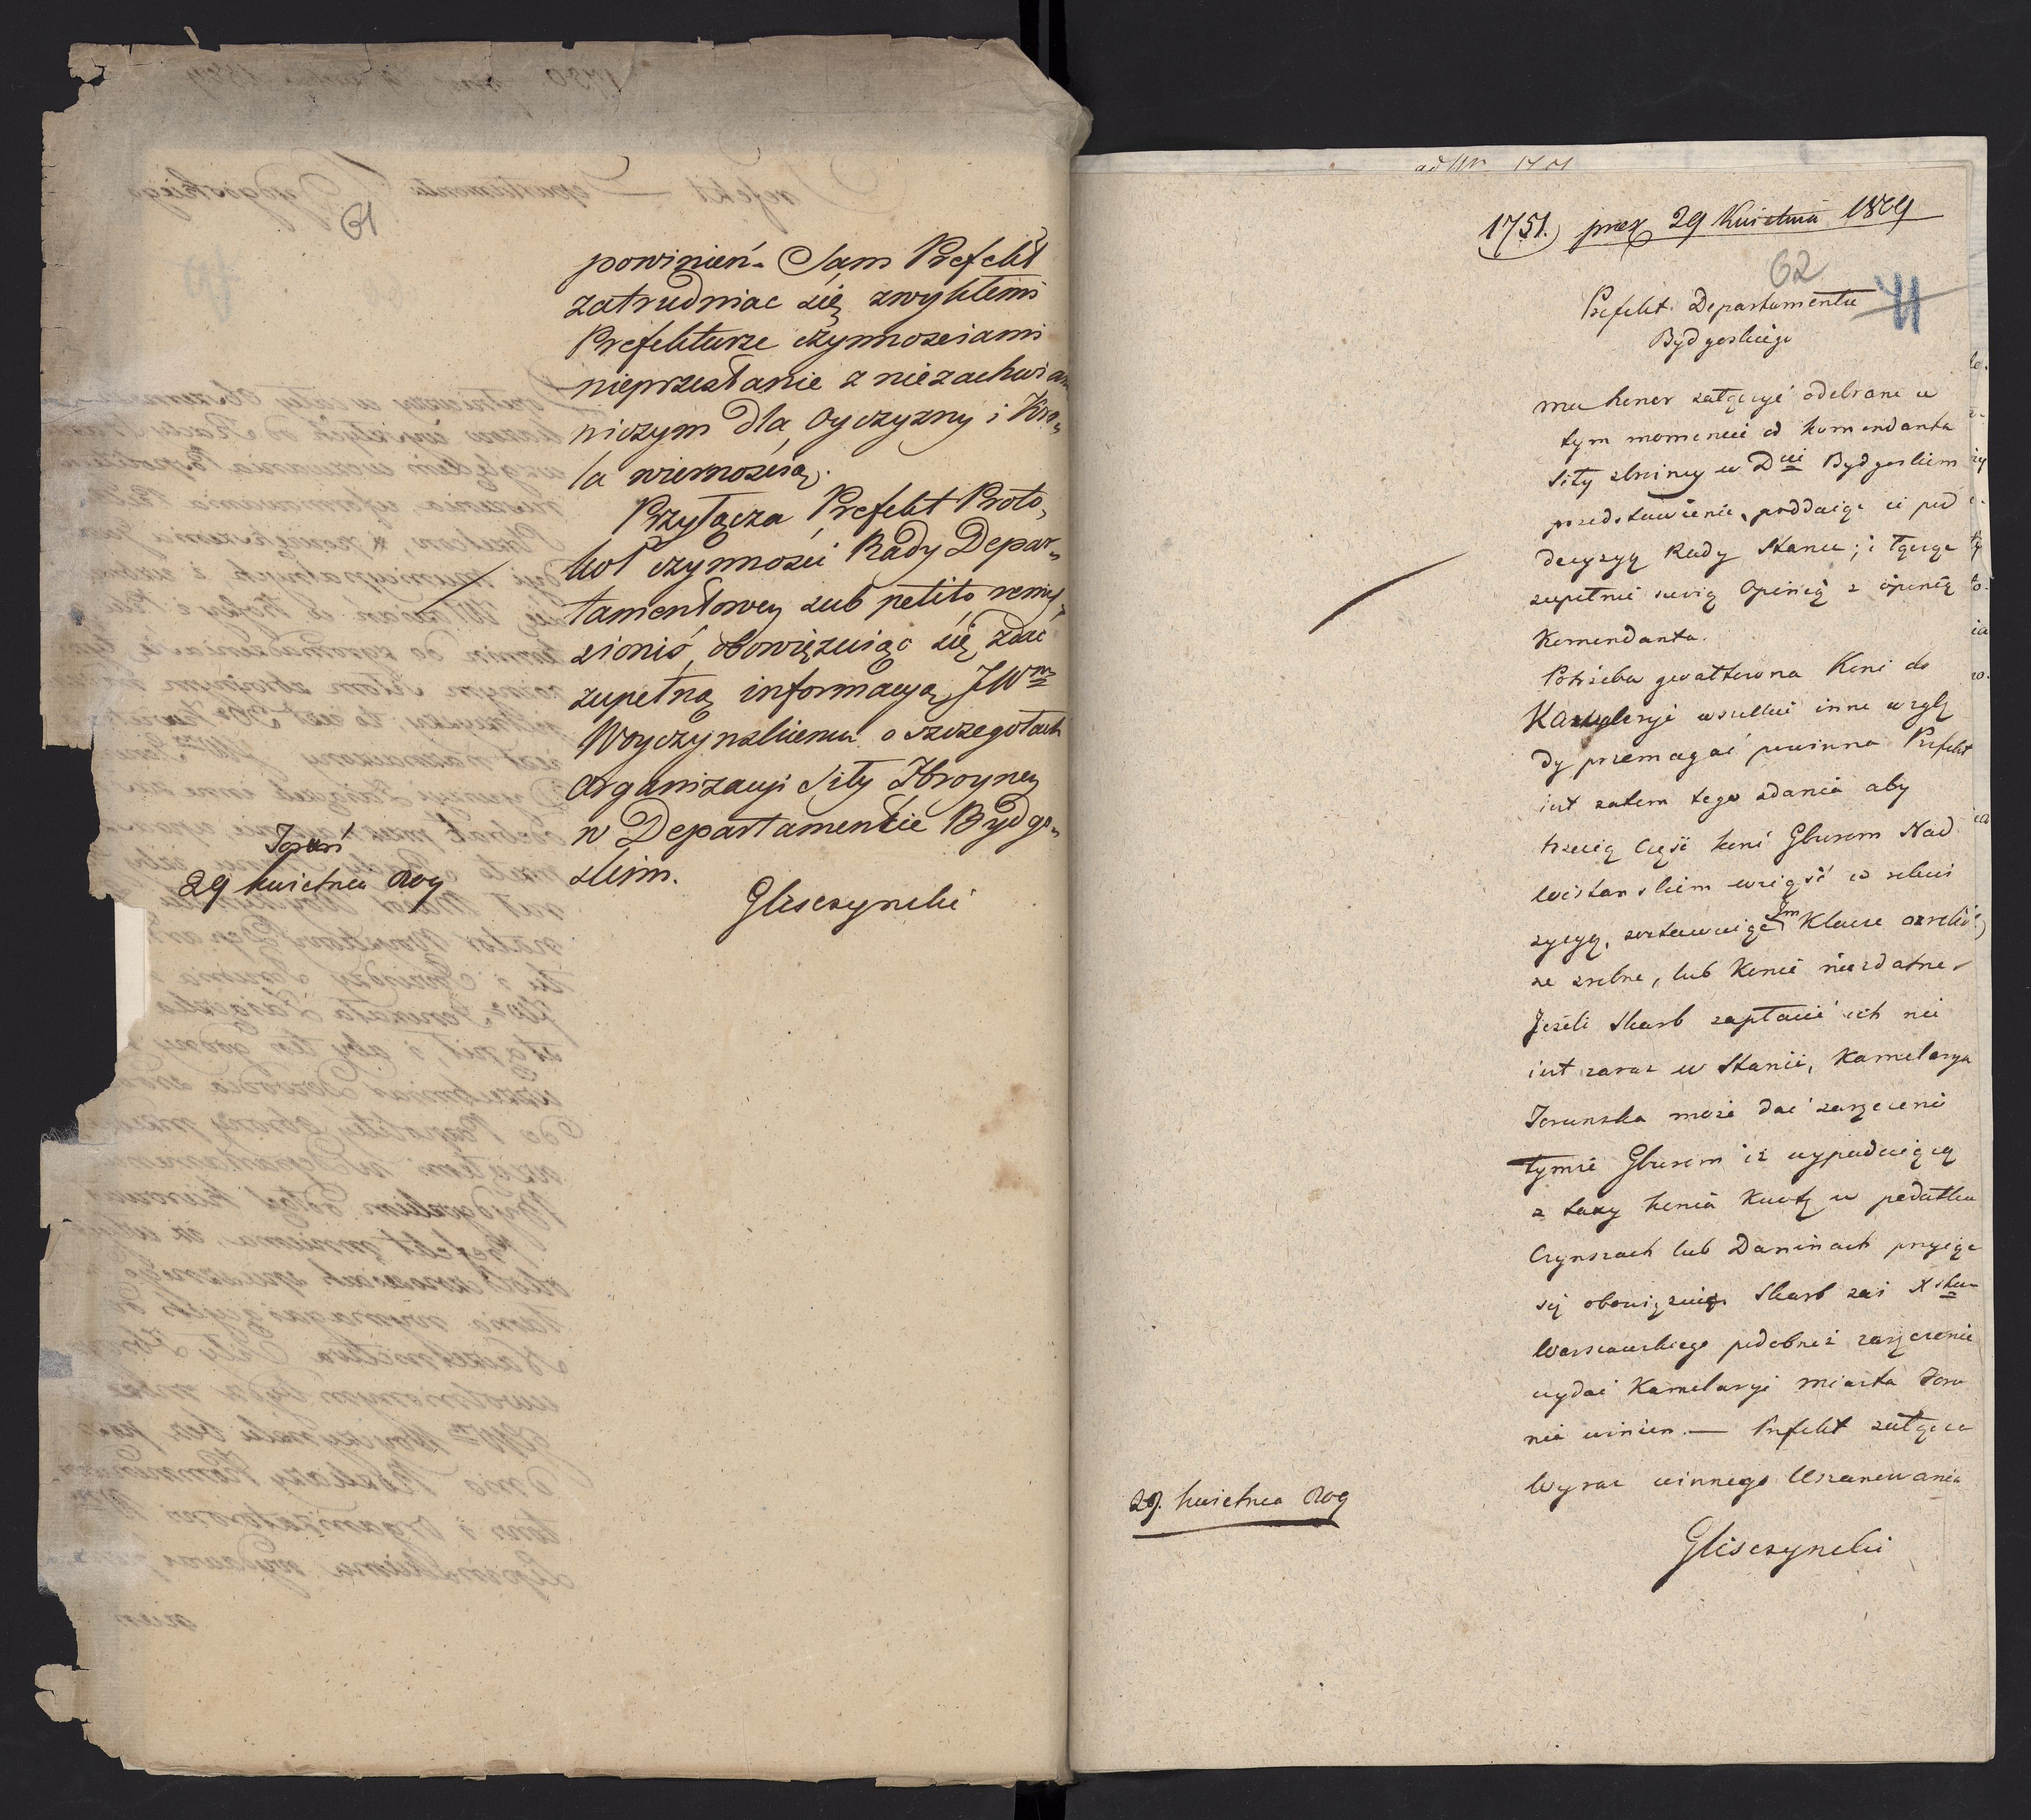 61
powinień. Sam Prefekt
zatrudniac się zwykłemi
Prefekturze czynnosciami
nieprzestanie z niezachwian
niczym dla Oyczyzny i Kró„
la wiernoscią.
Przyłącza Prefekt Proto„
koł czynności Rady Depar„
tamentowey sub petito remis„
sionis, obowięzuiąc się zdac
zupełną informacyą JWmu
Woyczynskiemu o szczegołach
organizacyi Siły Zbroyney
w Departamencie Bydgo„
skim.
Gliszczynski
Toruń
29 kwietnia 809
ad Nr 1701
1751.) prez 29 Kwietnia 1809
62
Prefekt Departamentu
Bydgoskiego
ma honor załączyć odebrane w
tym momencie od Komendanta
Siły zbroiney w Dcie Bydgoskim
przedstawienie, poddaiąc ie pod
decyzyą Rady Stanu; i łącząc
zupełnie swoią Opinią z opinią
Komendanta.
Potrzeba gwałtowna Koni do
Kawaleryi wszelkie inne wzglę
dy przemagać powinna Prefekt
iest zatem tego zdania aby
trzecią Część koni Gburom Nad
wislanskim wziąść w rekwi
zycyą, zostawuiąc Im Klacze
źrebne, lub Konie niezdatne.
Jeżeli Skarb zapłacić ich nie
iest zaraz w Stanie, Kamelarya
Torunska może dać zaręczenie
tymże Gburom iż wypadaiącą
z taxy konia Kwotę w podatku
Czynszach lub Daninach przyiąć
się obowięzuie Skarb zaś Xstwa
Warszawskiego podobneż zaręczenie
wydać Kamelaryi miasta Toru
nia winien. — Prefekt załącza
Wyraz winnego Uszanowania
Gliszczynski
29. kwietnia 809